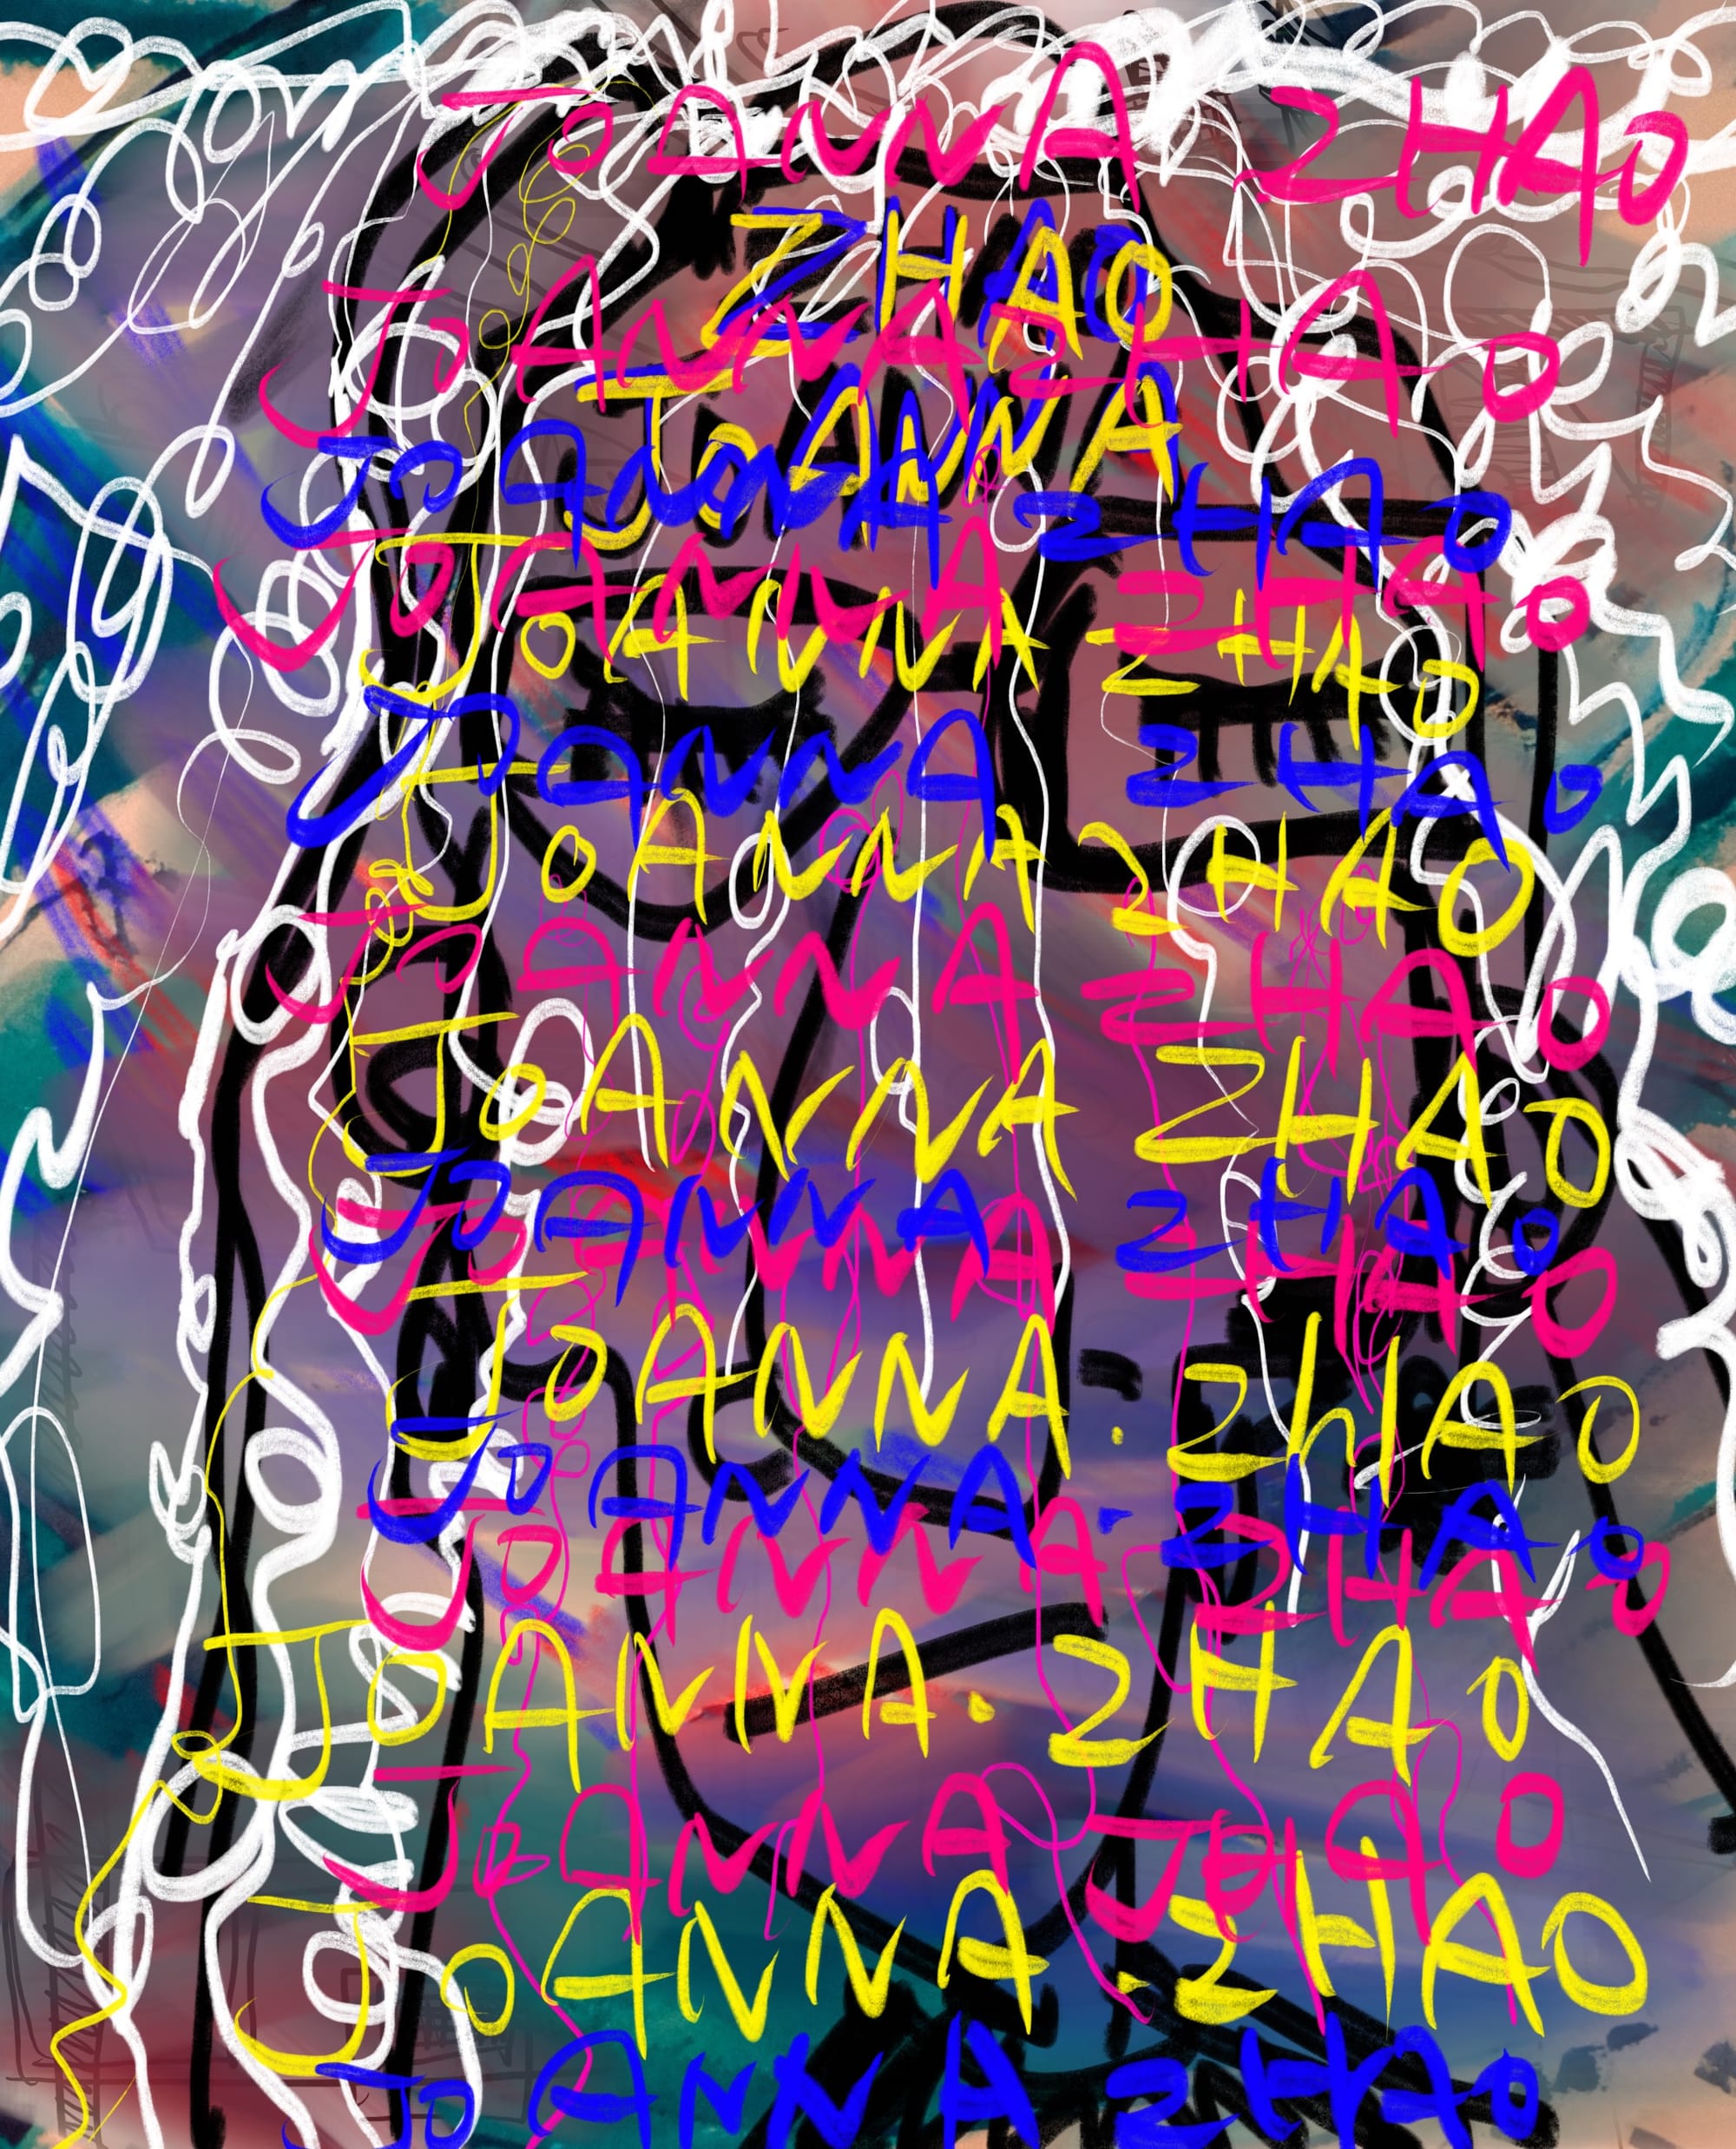 JOANNA ZHAO
ZHAO
JOANNA ZHAO
JOANNA
JOANNA ZHAO
JOANNA ZHAO
JOANNA ZHAO
JOANNA ZHAO
JOANNA ZHAO
JOANNA ZHAO
JOANNA ZHAO
JOANNA ZHAO
JOANNA ZHAO
JOANNA. ZHAO
JOANNA. ZHAO
JOANNA ZHAO
JOANNA. ZHAO
JOANNA
JOANNA. ZHAO
JOANNA ZHAO